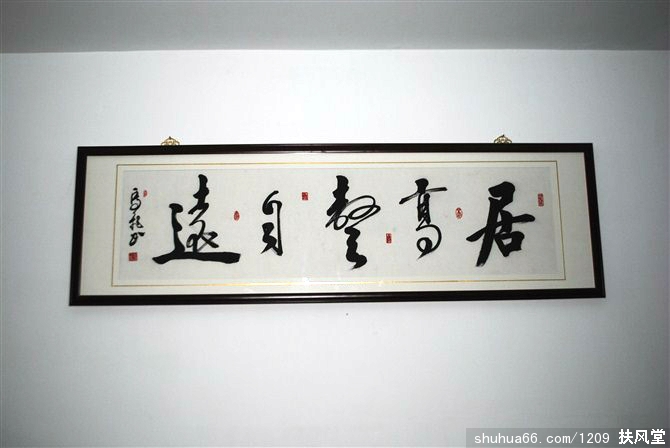 居高聲自遠
shuhua66.com/1209 扶风堂